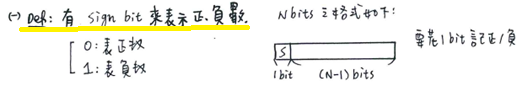 (一) Def: 有 sign bit 來表示正、負數.
0: 表正數
1: 表負數
N bits 之格式如下:
S
1 bit
(N-1) bits
要花 1 bit 記正/負